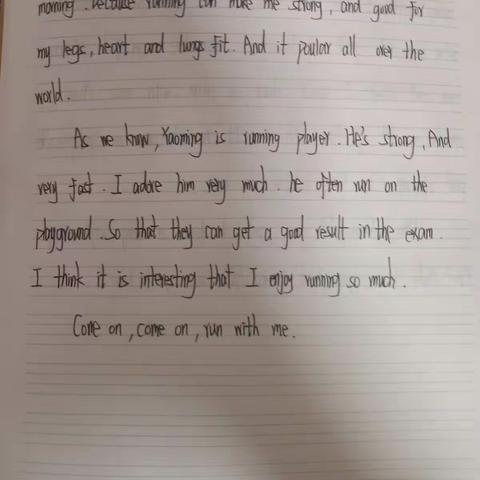 morning. Because running can make me strong, and good for
my legs, heart and lungs fit. And it poular all over the
world.
As we know, Yaoming is running player. He's strong. And
very fast. I adore him very much. he often run on the
playground. So that they can get a good result in the exam.
I think it is interesting that I enjoy running so much.
Come on, come on, run with me.